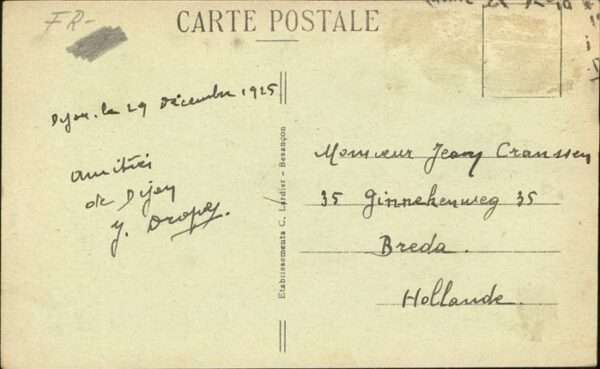 FR-
CARTE POSTALE
Dijon. le 29 Décembre 1925
amitiés
de Dijon
y.
Etablissements C. Lardier - Besançon
Monsieur Jean Cranssen
35 Ginnekenweg 35
Breda.
Hollande.